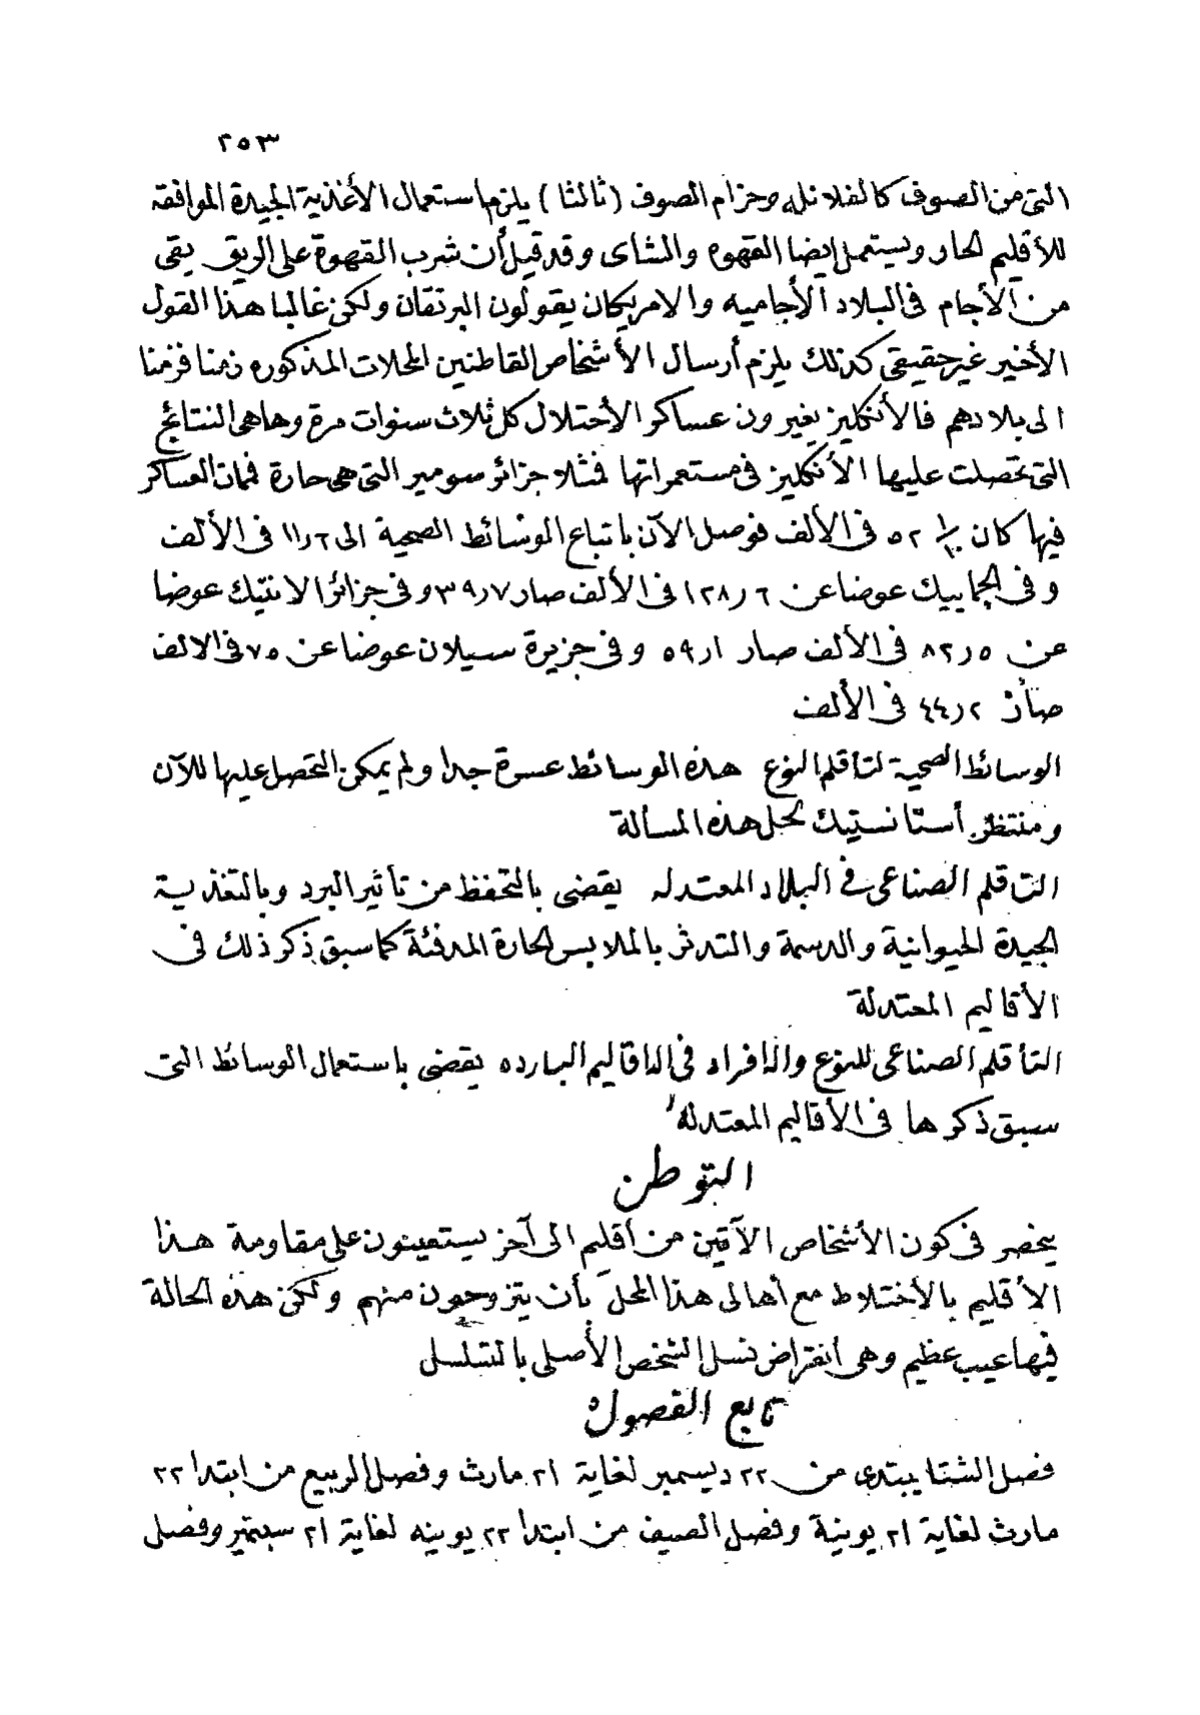 ٢٥٣
التى من الصوف كالفلانله وحزام الصوف (ثالثا) يلزم استعمال الأغذية الجيدة الموافقة
للأقليم الحار ويستعمل ايضا القهوه والشاى وقد قيل أن شرب القهوة على الريق يقى
من الأجام فى البلاد الأجاميه والامريكان يقولون البرتقان ولكن غالبا هذا القول
الأخير غير حقيقى كذلك يلزم أرسال الأشخاص القاطنين المحلات المذكوره زمنا فزمنا
الى بلادهم فالأنكليز يغيرون عساكر الأحتلال كل ثلاث سنوات مرة وهاهى النتائج
التى تحصلت عليها الأنكليز فى مستعمراتها فمثلا جزائر سومير التى هى حارة فمات العساكر
فيها كان ٥٢ فى الألف فوصل الآن باتباع الوسائط الصحية الى ١١٫٦ فى الألف
وفى الجماييك عوضا عن ١٢٨٫٦ فى الألف صار ٣٩٫٧ وفى جزائر الانتيك عوضا
عن ٨٢٫٥ فى الألف صار ٥٩٫١ وفى جزيرة سيلان عوضا عن ٧٥ فى الالف
صار ٤٤٫٢ فى الألف
الوسائط الصحية لتأقلم النوع هذه الوسائط عسرة جدا ولم يمكن التحصل عليها للآن
ومنتظر أستانستيك لحل هذه المسألة
التاقلم الصناعى فى البلاد المعتدله يقضى بالتحفظ من تأثير البرد وبالتغذية
الجيدة الحيوانية والدسمة والتدثر بالملابس الحارة المدفئة كما سبق ذكر ذلك فى
الأقاليم المعتدلة
التأقلم الصناعى للنوع والافراد فى الاقاليم البارده يقضى باستعمال الوسائط التى
سبق ذكرها فى الأقاليم المعتدلة
التوطن
ينحصر فى كون الأشخاص الآتين من أقليم الى آخر يستعينون على مقاومة هذا
الأقليم بالأختلاط مع أهالى هذا المحل بأن يتزوجون منهم ولكن هذه الحالة
فيها عيب عظيم وهى انقراض نسل الشخص الأصلى بالتسلسل
تابع الفصول
فصل الشتا يبتدى من ٢٢ ديسمبر لغاية ٢١ مارث وفصل الربيع من ابتدا ٢٢
مارث لغاية ٢١ يونية وفصل الصيف من ابتدا ٢٢ يونيه لغاية ٢١ سبتمبر وفصل